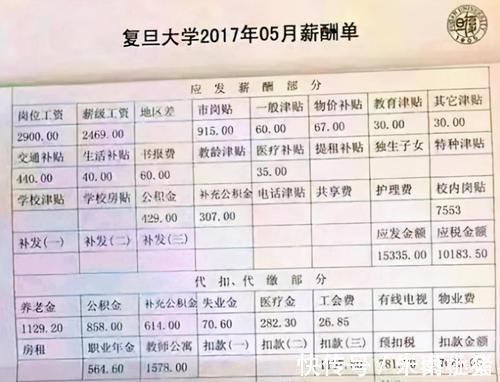 复旦大学2017年05月薪酬单
应发薪酬部分
岗位工资 薪级工资 地区差 市岗贴 一般津贴 物价补贴 教育津贴 其它津贴
2900.00 2469.00 915.00 60.00 67.00 30.00 30.00
交通补贴 生活补贴 书报费 教龄津贴 医疗补贴 提租补贴 独生子女 特种津贴
440.00 40.00 60.00 35.00
学校津贴 学校房贴 公积金 补充公积金 电话津贴 共享费 护理费 校内岗贴
429.00 307.00 7553
补发(一) 补发(二) 补发(三) 应发金额 应税金额
15335.00 10183.50
代扣、代缴部分
养老金 公积金 补充公积金 失业金 医疗金 工会费 有线电视 物业费
1129.20 858.00 614.00 70.60 282.30 26.85
房租 职业年金 教师公寓 扣款(一) 扣款(二) 扣款(三) 预扣税 扣款金额
564.60 1578.00
快传号